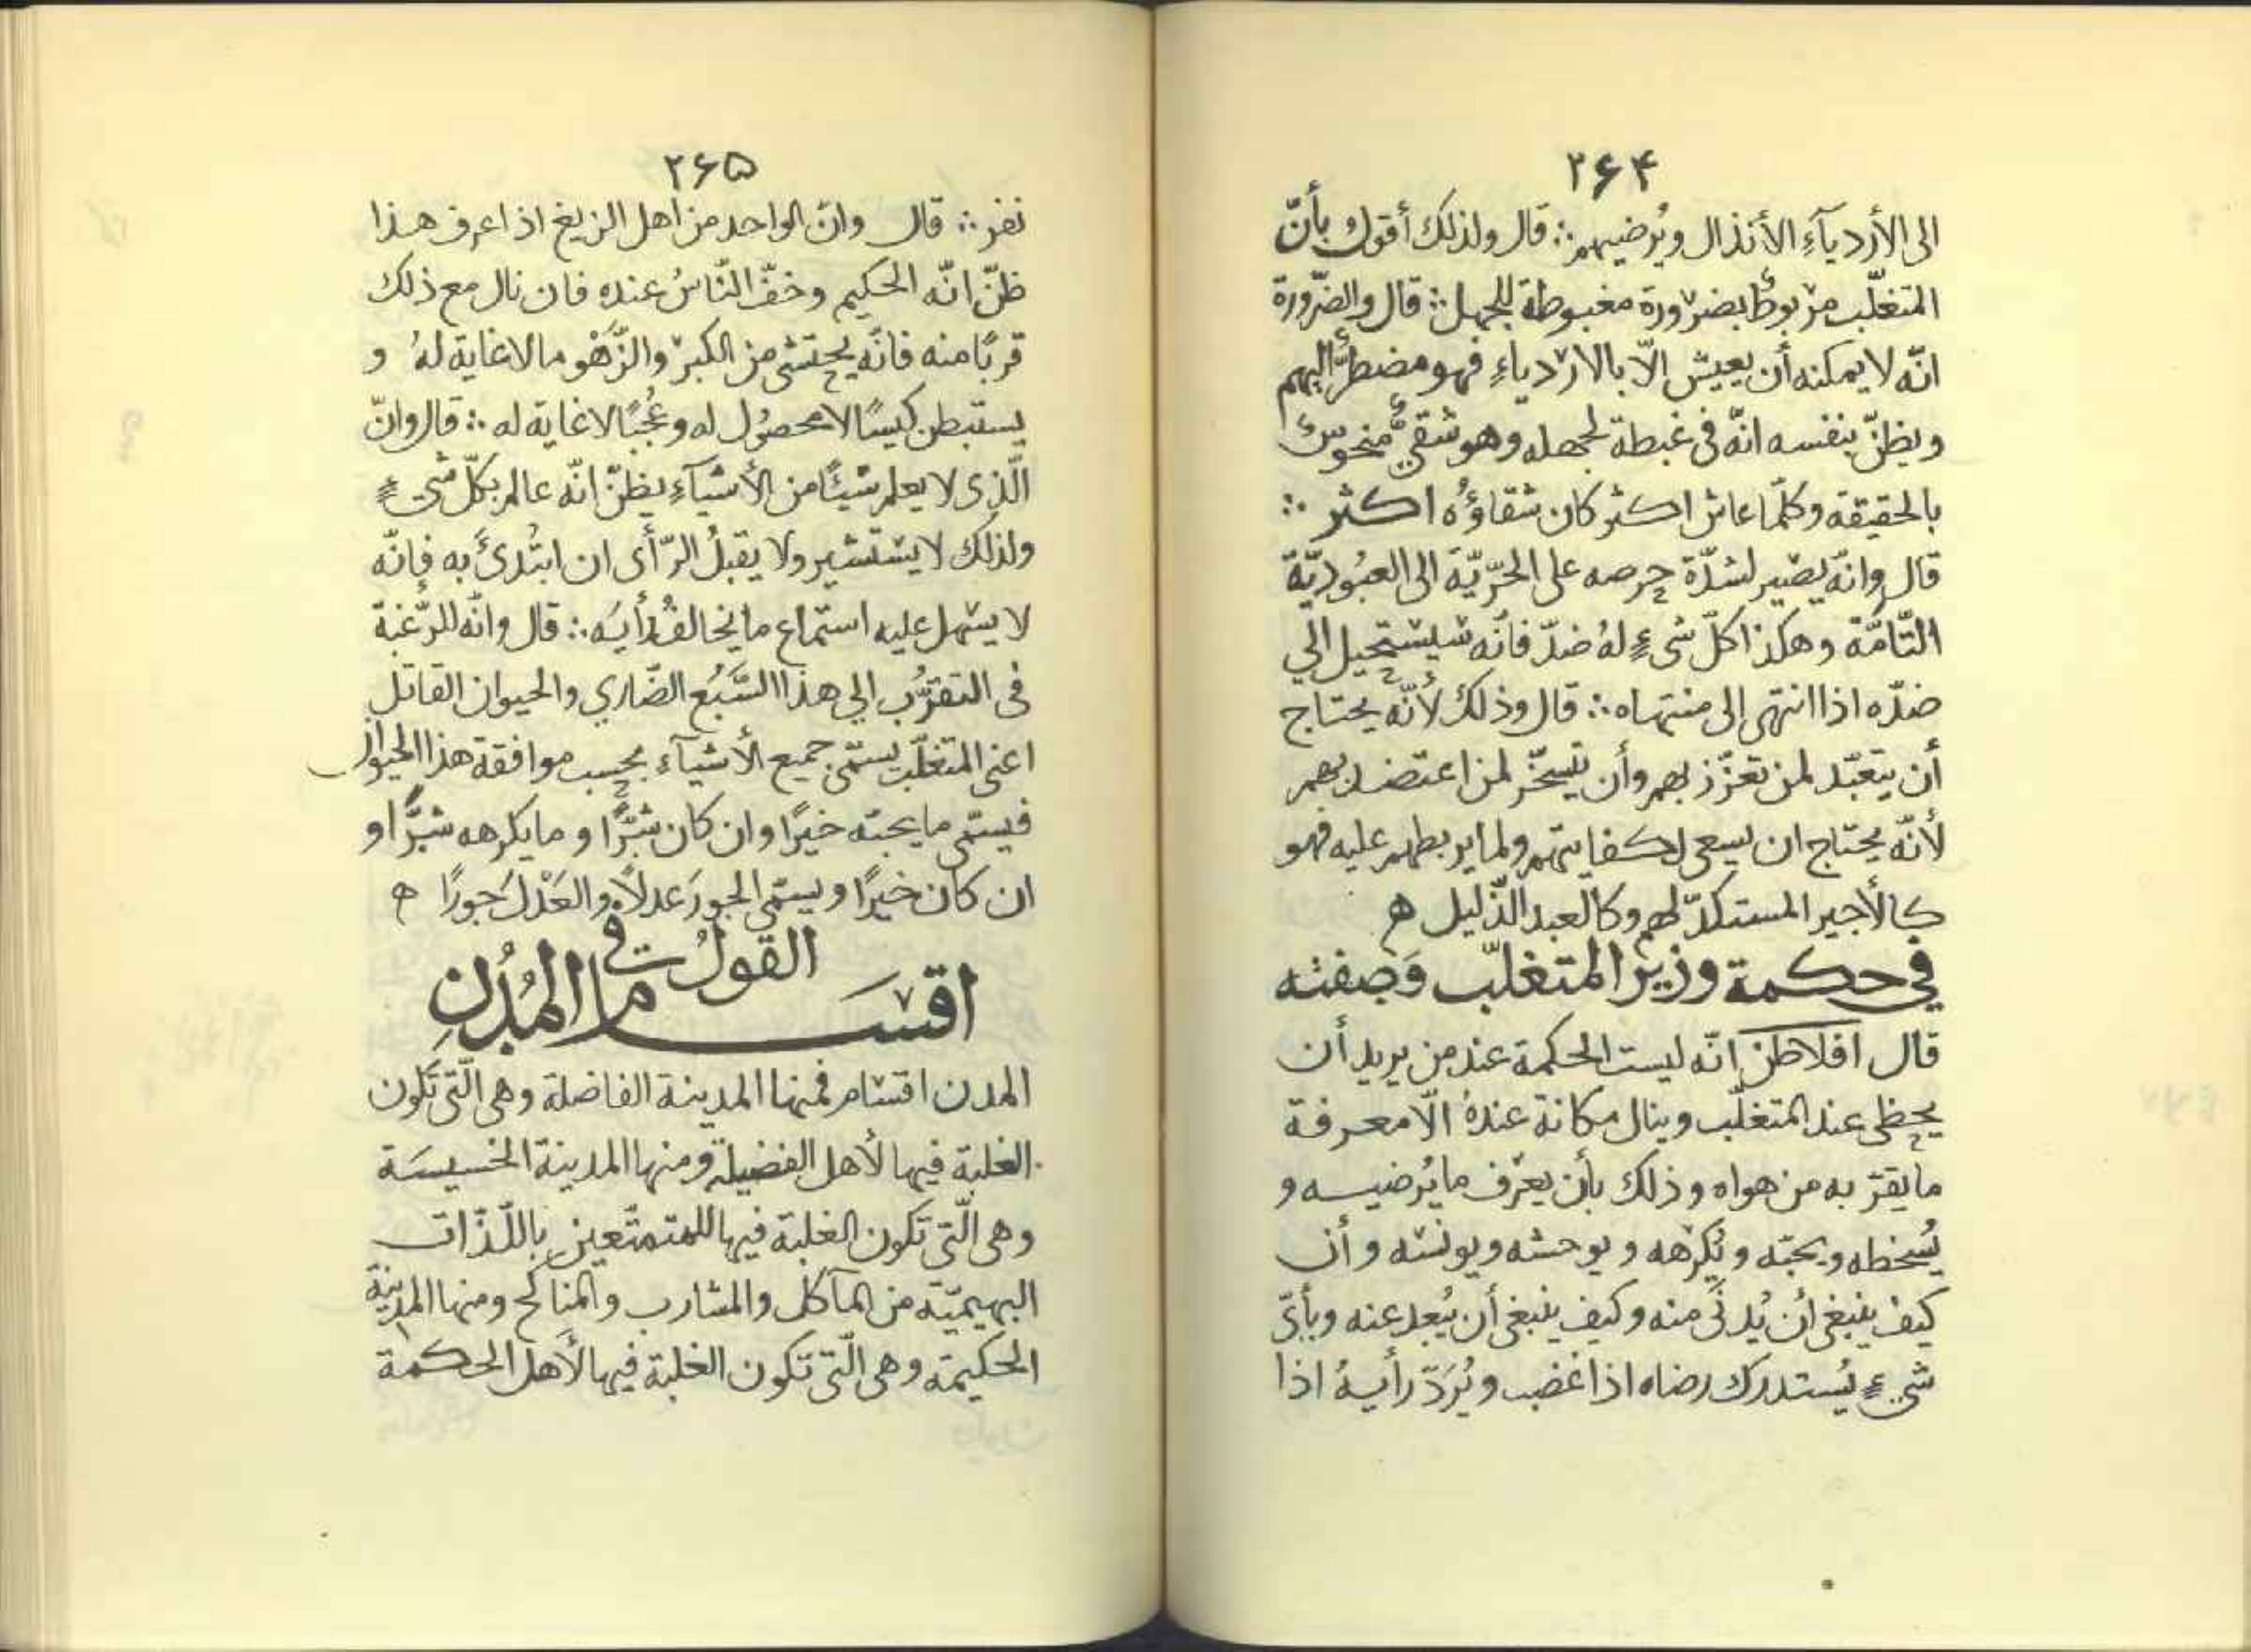 ۲۶۴
الى الأردياۤءِ الأنذال ويُرضيهم ∴ قال ولذلك أقول بأنّ
المتغلّب مربوطٌ بضرورة مغبوطة للجهل ∴ قال والضّرورة
انّه لا يمكنه أن يعيش الّا بالارديَاءِ فهو مضطرٌّ اليهم
ويظنّ بنفسه انّه فى غبطة لجهله وهو شقىٌّ منحوسٌ
بالحقيقة وكلّما عاش اكثر كان شقاؤُه اكثر ∴
قال وانّه يصير لشدّة حرصه على الحرّيّة الى العبُوديّة
التّامّة وهكذا كلّ شىءٍ لهُ ضدّ فانّه سيستحيل الى
ضدّه اذا انتهى الى منتهاه ∴ قال وذلك لأنّه يحتاج
أن يتعبّد لمن تعزّز بهم وأن يتسخّر لمن اعتضد بهم
لأنّه يحتاج ان يسعى لكفايتهم ولما يربطهم عليه فهو
كالأجير المستكدّ لهم وكالعبد الذّليل ه
فى حكمة وزير المتغلّب وَصفته
قال افلاطن انّه ليست الحكمة عند من يريد أن
يحظى عند المتغلّب وينال مكانة عندهُ الّا معرفة
ما يقرّبه من هواه وذلك بأن يعرف ما يُرضيه و
يُسخطه ويحبّه ويُكرهه ويوحشه ويونسه وأن
كيف ينبغى أن يُدنى منه وكيف ينبغى أن يُبعد عنه وبأىّ
شىءٍ يُستدرك رضاه اذا غضب ويُرَدّ رأيهُ اذا
۲۶۵
نفر ∴ قال وانّ الواحد من اهل الزيغ اذا عرف هذا
ظنّ انّه الحكيم وخفّ النّاسُ عنده فان نال مع ذلك
قربًا منه فانّه يحتشى من الكبر والزّهْو ما لا غاية لهُ و
يستبطن كيسًا لا محصُول له وعُجبًا لا غاية له ∴ قال وانّ
الّذى لا يعلم شيئًا من الأشيآءِ يظنّ انّه عالم بكلّ شىءٍ
ولذلك لا يستشير ولا يقبلُ الرّأى ان ابتُدئَ به فإنّه
لا يسهل عليه استماع ما يخالفُ رأيَه ∴ قال وانّه للرّغبة
فى التقرُّب الى هذا السَّبُع الضّارى والحيوان القاتل
اعنى المتغلّب يسمّى جميع الأشيآء بحسب موافقة هذا الحيوان
فيسمّى ما يحبّه خيرًا وان كان شرًّا وما يكرهه شرًّا و
ان كان خيرًا ويسمّى الجورَ عدلًا والعَدْلَ جورًا ه
القولُ فى
اقسام المُدُنِ
المدن اقسام فمنها المدينة الفاضلة وهى الّتى تكون
الغلبة فيها لأهل الفضيلة ومنها المدينة الخسيسَة
وهى الّتى تكون الغلبة فيها للمتمتّعين باللّذّات
البهيميّة من المآكل والمشارب والمناكح ومنها المدينة
الحكيمة وهى الّتى تكون الغلبة فيها لأهل الحكمة